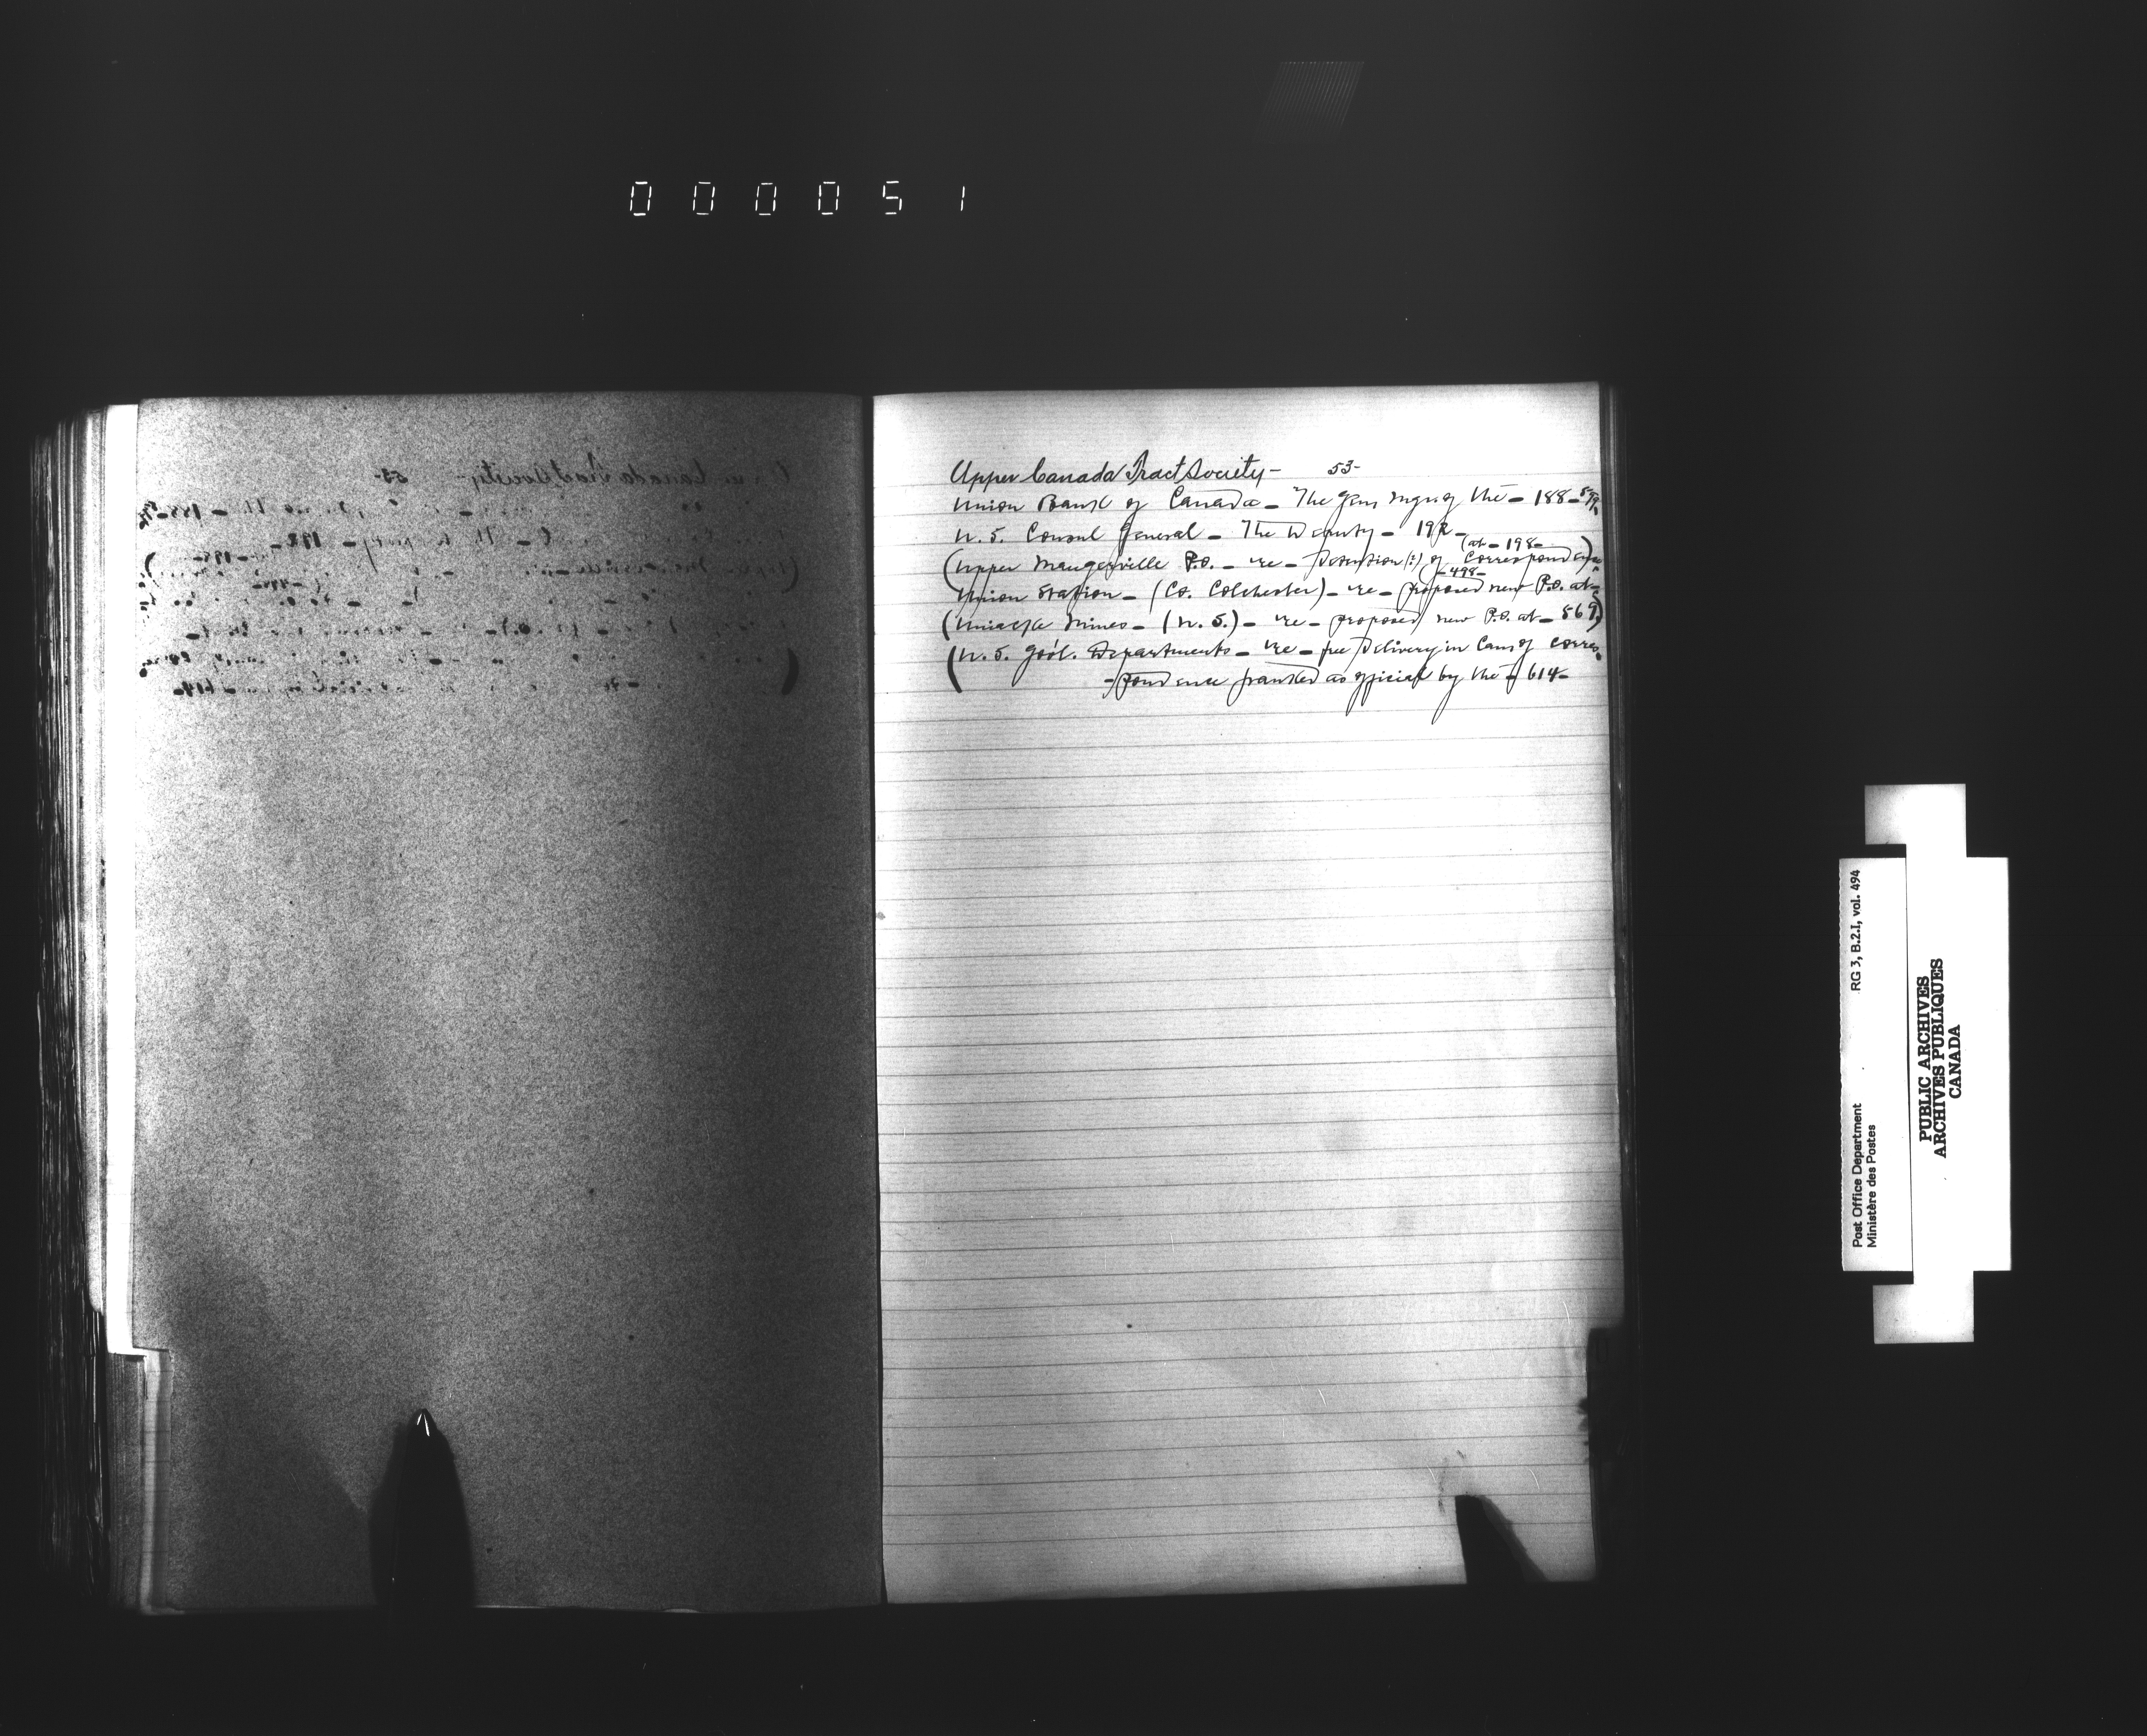 000051
Upper Canada Tract Society - 53-
Union Bank of Canada - The Gen Mgr. of the - 188 - 599
U. S. Consul General - The Deputy - 192 -
(at - 198 -
(Upper Maugerville P.O. - re - Detention (?) of Correspondence)
- 498 -
Union Station - (Co. Colchester) - re - proposed new P.O. at -
(Uniacke Mines - (N. S.) - re - proposed new P.O. at - 569)
(U. S. Gov't. Departments - re - free delivery in Can. of corres-
- pondence franked as official by the - 614 -
RG 3, B.2.I, vol. 494
Post Office Department
Ministère des Postes
PUBLIC ARCHIVES
ARCHIVES PUBLIQUES
CANADA